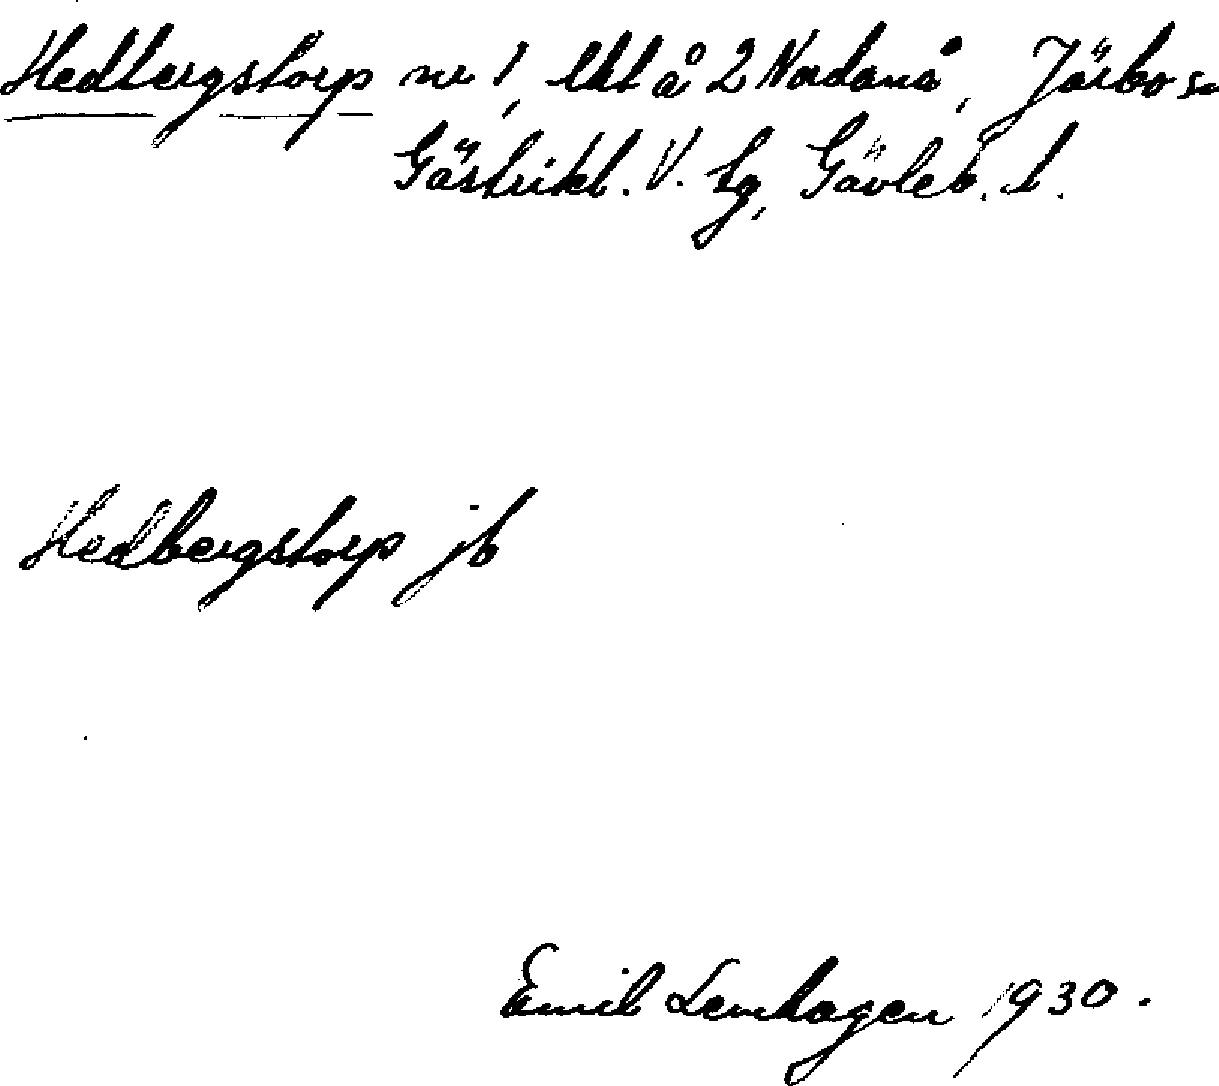 Hedbergstorp nr 1, lht å 2 Nordanå, Järbo sn
Gästrikl. V. tg, Gävleb. l.
Hedbergstorp jb
Emil Lemhagen 1930.